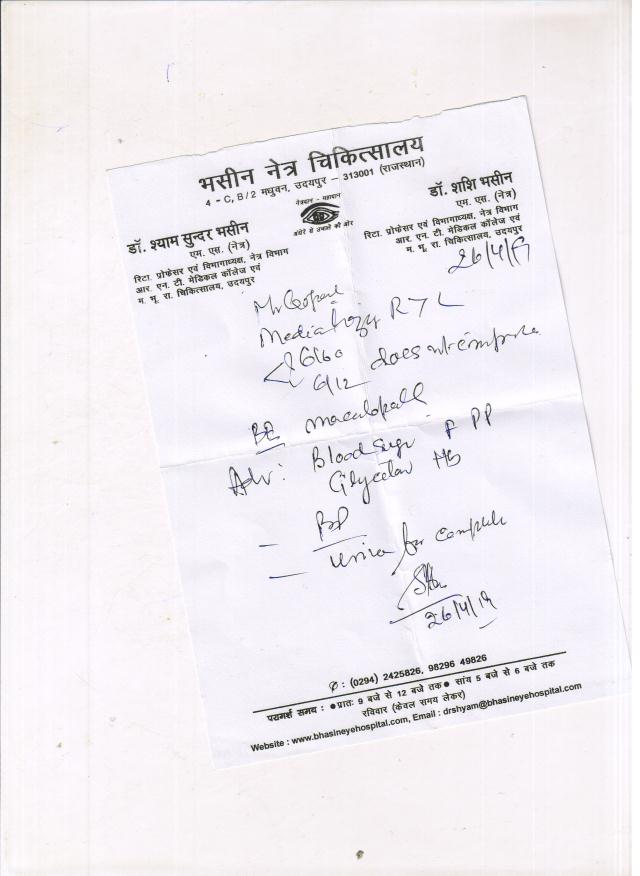 भसीन नेत्र चिकित्सालय
4 - C, B/2 मधुवन, उदयपुर – 313001 (राजस्थान)
नेत्रदान - महादान
अंधेरे से उजाले की ओर
डॉ. श्याम सुन्दर भसीन
एम. एस. (नेत्र)
रिटा. प्रोफेसर एवं विभागाध्यक्ष, नेत्र विभाग
आर. एन. टी. मेडिकल कॉलेज एवं
म. भू. रा. चिकित्सालय, उदयपुर
डॉ. शशि भसीन
एम. एस. (नेत्र)
रिटा. प्रोफेसर एवं विभागाध्यक्ष, नेत्र विभाग
आर. एन. टी. मेडिकल कॉलेज एवं
म. भू. रा. चिकित्सालय, उदयपुर
26/4/19
Media hazy R 7 L
6/60
6/12 does not improve
BE
Adv: Blood Sugar F PP
Hb
BP
Urine for complete
26/4/19
✆ : (0294) 2425826, 98296 49826
परामर्श समय : ●प्रातः 9 बजे से 12 बजे तक● सांय 5 बजे से 6 बजे तक
रविवार (केवल समय लेकर)
Website : www.bhasineyehospital.com, Email : drshyam@bhasineyehospital.com